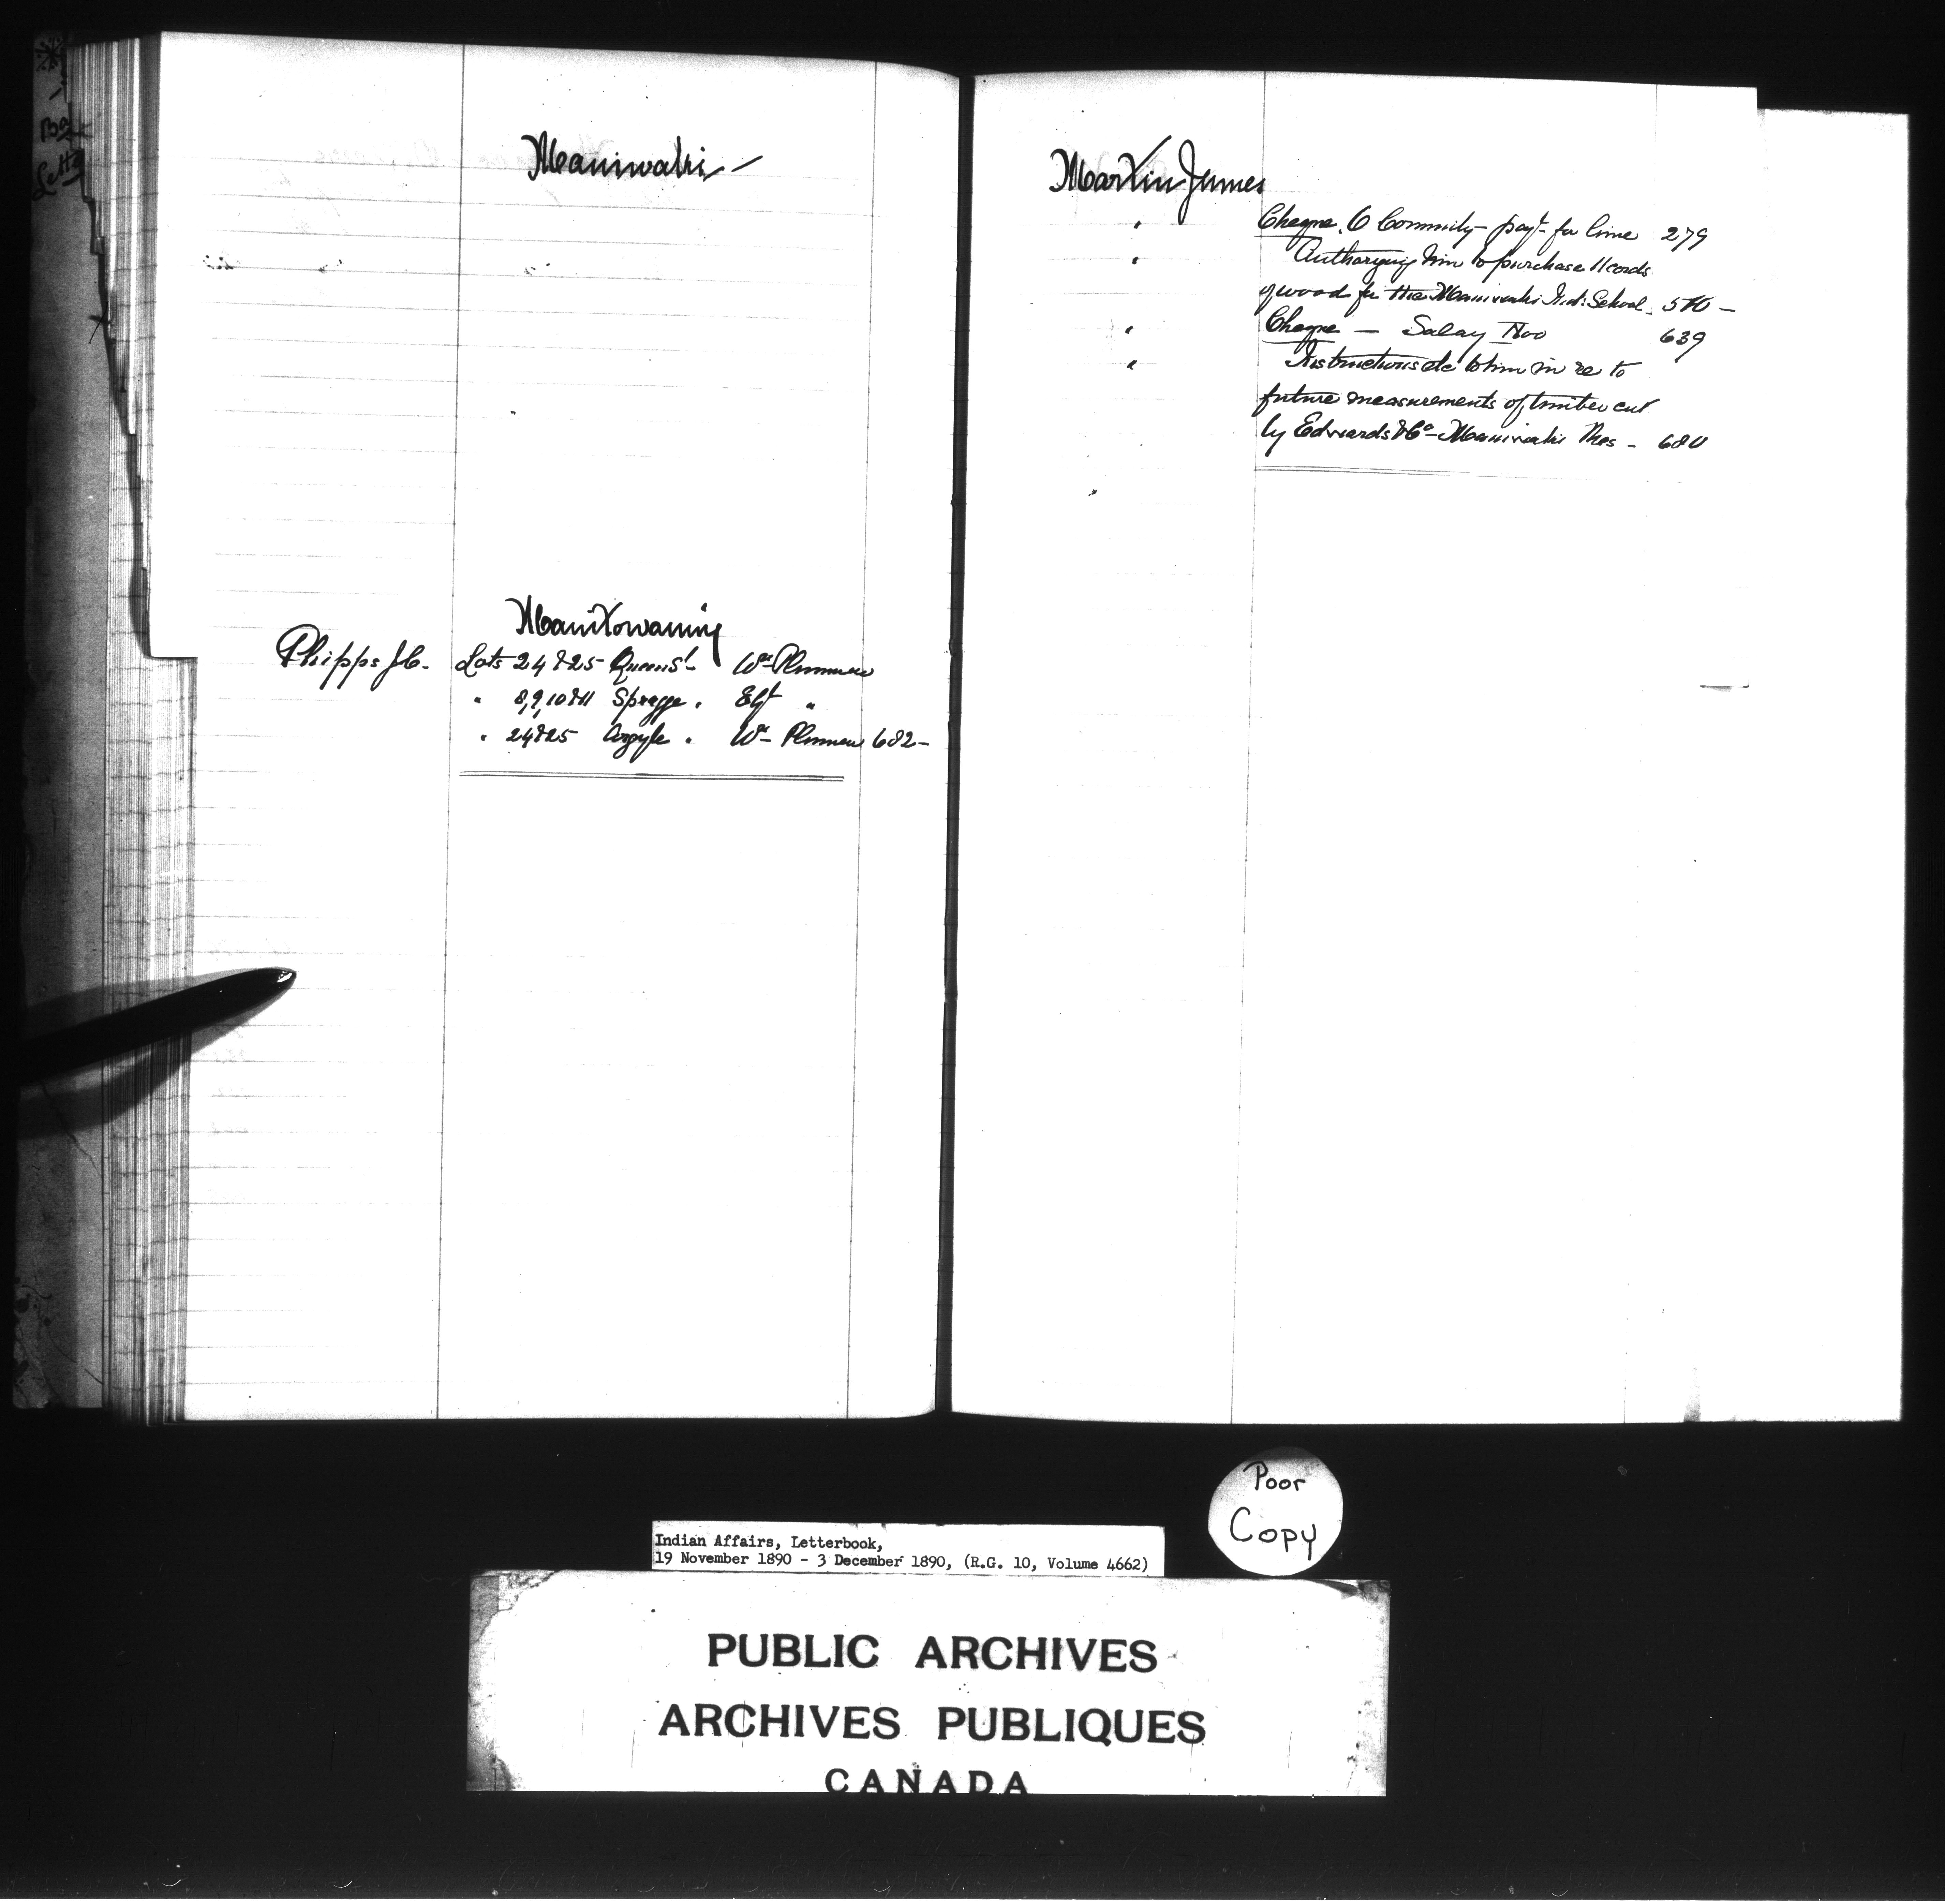 Maniwaki —
Manitowaning
Phipps J.C. Lots 24 & 25 Queen St. Wm Plummer
" 8, 9, 10 & 11 Spragge " Elzt "
" 24 & 25 Argyle " Wm Plummer 682 -
Martin James
" Cheque. C Connnily - payt for lime 279
" Authorizing him to purchase 11 cords
of wood for the Maniwaki Ind: School - 510 -
" Cheque — Salary Nov 639
" Instructions &c to him in re to
future measurements of timber cut
by Edwards & Co - Maniwaki Res - 680
Poor
Copy
Indian Affairs, Letterbook,
19 November 1890 - 3 December 1890, (R.G. 10, Volume 4662)
PUBLIC ARCHIVES
ARCHIVES PUBLIQUES
CANADA